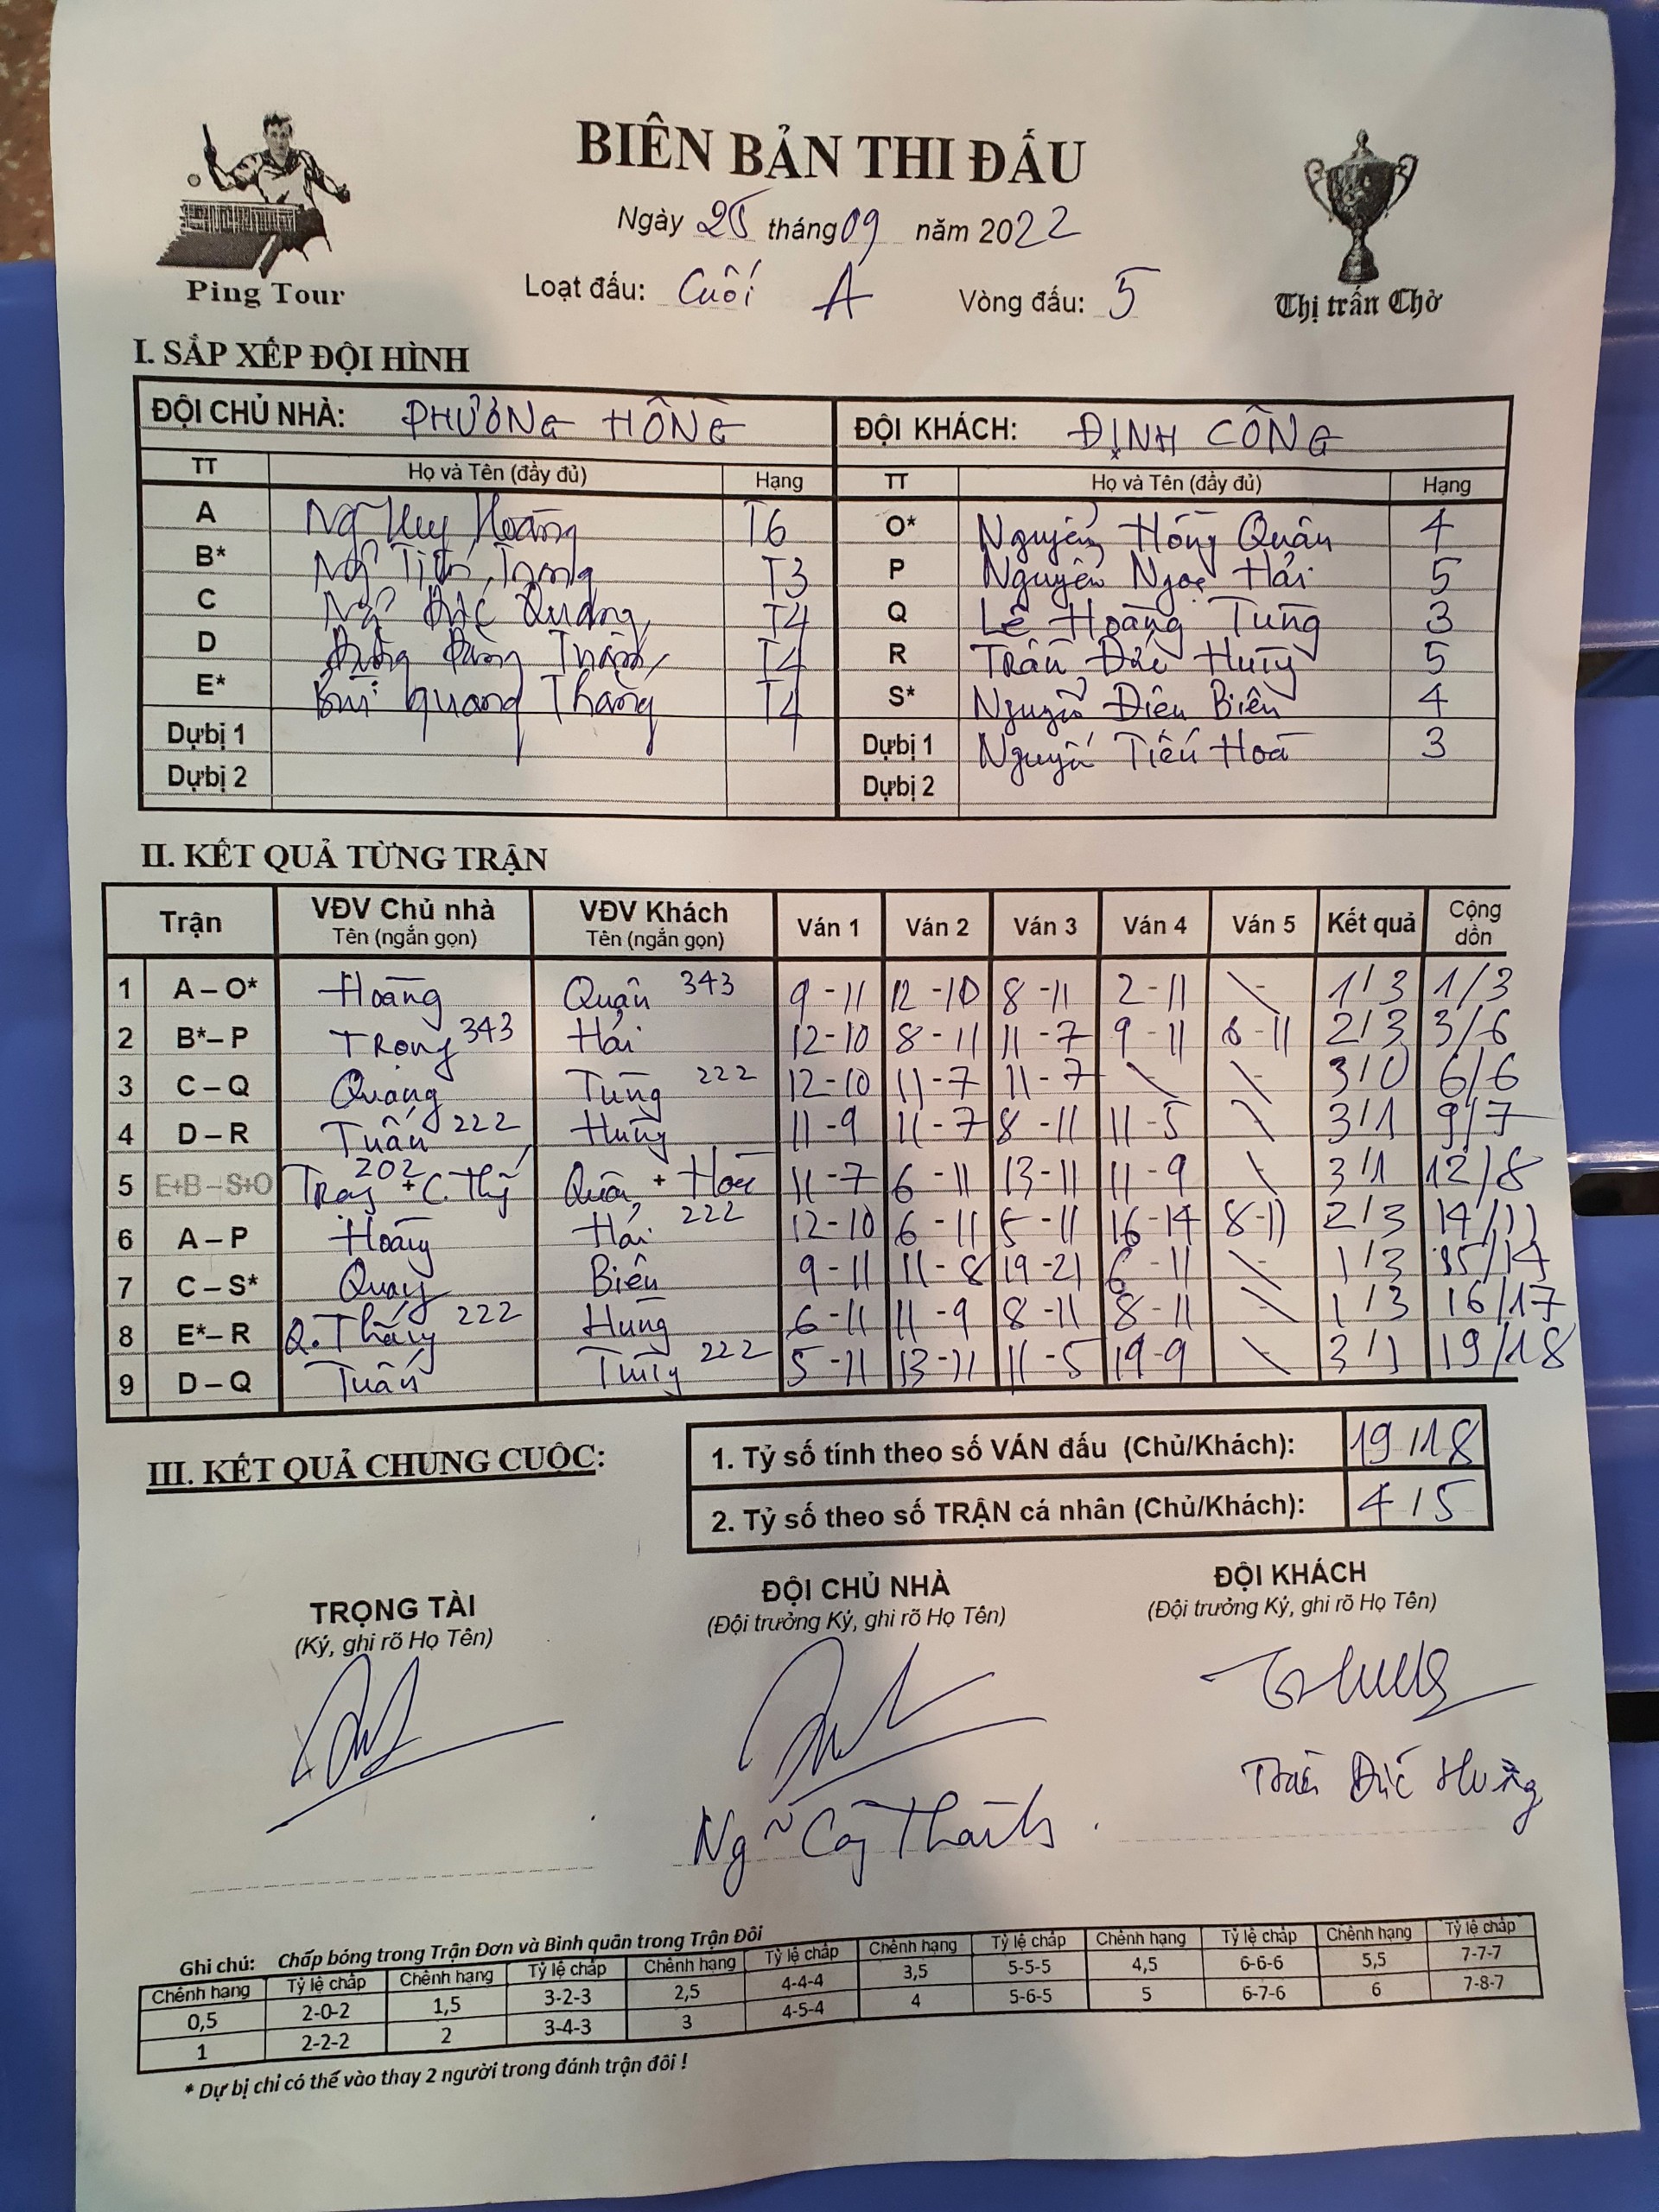 BIÊN BẢN THI ĐẤU
Ngày 25 tháng 09 năm 2022
Ping Tour
Loạt đấu: Cuối A Vòng đấu: 5
Thị trấn Chờ
I. SẮP XẾP ĐỘI HÌNH
ĐỘI CHỦ NHÀ: PHƯỢNG HỒNG ĐỘI KHÁCH: ĐỊNH CÔNG
TT Họ và Tên (đầy đủ) Hạng TT Họ và Tên (đầy đủ) Hạng
A Ng Huy Hoàng T6 O* Nguyễn Hồng Quân 4
B* Ngô Tiến Trọng T3 P Nguyễn Ngọc Hải 5
C Ngô Đức Quang T4 Q Lê Hoàng Tùng 3
D T4 R Trần Đức Hưng 5
E* Bùi Quang Thắng T4 S* Nguyễn Điện Biên 4
Dự bị 1 Dự bị 1 Nguyễn Tiến Hoà 3
Dự bị 2 Dự bị 2
II. KẾT QUẢ TỪNG TRẬN
Trận VĐV Chủ nhà VĐV Khách Ván 1 Ván 2 Ván 3 Ván 4 Ván 5 Kết quả Cộng dồn
Tên (ngắn gọn) Tên (ngắn gọn)
1 A – O* Hoàng Quân 343 9-11 12-10 8-11 2-11 \ 1/3 1/3
2 B* – P Trọng 343 Hải 12-10 8-11 11-7 9-11 8-11 2/3 3/6
3 C – Q Quang Tùng 222 12-10 11-7 11-7 \ \ 3/0 6/6
4 D – R Tuấn 222 Hưng 11-9 11-7 8-11 11-5 \ 3/1 9/7
5 E+B – S+O Trọng 202 + C. Quân + Hoà 11-7 6-11 13-11 11-9 \ 3/1 12/8
6 A – P Hoàng Hải 222 12-10 6-11 5-11 16-14 8-11 2/3 14/11
7 C – S* Quang Biên 9-11 11-8 19-21 6-11 \ 1/3 15/14
8 E* – R Q. Thắng 222 Hưng 6-11 11-9 8-11 8-11 \ 1/3 16/17
9 D – Q Tuấn Tùng 222 5-11 13-11 11-5 19-9 \ 3/1 19/18
III. KẾT QUẢ CHUNG CUỘC:
1. Tỷ số tính theo số VÁN đấu (Chủ/Khách): 19/18
2. Tỷ số theo số TRẬN cá nhân (Chủ/Khách): 4/5
TRỌNG TÀI ĐỘI CHỦ NHÀ ĐỘI KHÁCH
(Ký, ghi rõ Họ Tên) (Đội trưởng Ký, ghi rõ Họ Tên) (Đội trưởng Ký, ghi rõ Họ Tên)
Trần Đức Hưng
Ghi chú: Chấp bóng trong Trận Đơn và Bình quân trong Trận Đôi
Chênh hạng Tỷ lệ chấp Chênh hạng Tỷ lệ chấp Chênh hạng Tỷ lệ chấp Chênh hạng Tỷ lệ chấp Chênh hạng Tỷ lệ chấp Chênh hạng Tỷ lệ chấp
0,5 2-0-2 1,5 3-2-3 2,5 4-4-4 3,5 5-5-5 4,5 6-6-6 5,5 7-7-7
1 2-2-2 2 3-4-3 3 4-5-4 4 5-6-5 5 6-7-6 6 7-8-7
* Dự bị chỉ có thể vào thay 2 người trong đánh trận đôi !